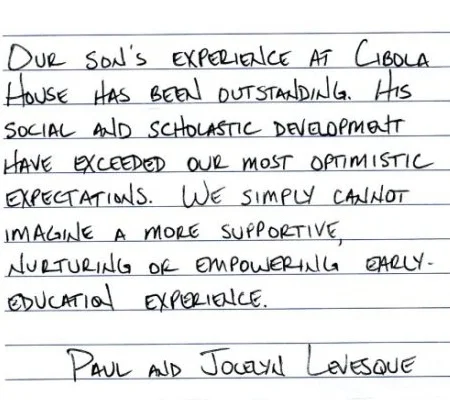 OUR SON'S EXPERIENCE AT CIBOLA
HOUSE HAS BEEN OUTSTANDING. HIS
SOCIAL AND SCHOLASTIC DEVELOPMENT
HAVE EXCEEDED OUR MOST OPTIMISTIC
EXPECTATIONS. WE SIMPLY CANNOT
IMAGINE A MORE SUPPORTIVE,
NURTURING OR EMPOWERING EARLY-
EDUCATION EXPERIENCE.
PAUL AND JOCELYN LEVESQUE